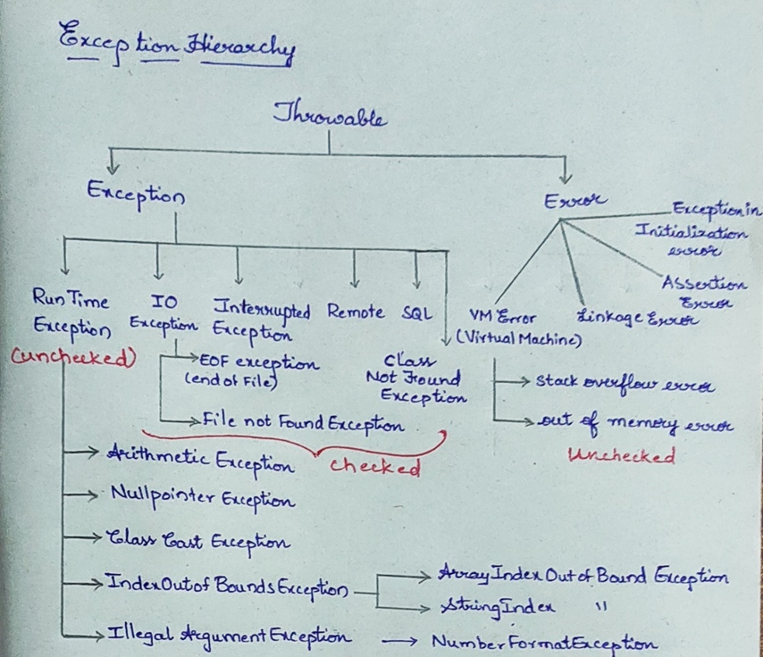 Exception Hierarchy
Throwable
Exception
Error
Exception in
Initialization
error
Assertion
Error
Linkage Error
VM Error
(Virtual Machine)
Run Time
Exception
(unchecked)
IO
Exception
Interrupted
Exception
Remote
SQL
Class
Not Found
Exception
EOF exception
(end of File)
File not Found Exception
checked
stack overflow error
out of memory error
Unchecked
Arithmetic Exception
Nullpointer Exception
Class Cast Exception
IndexOutof Bounds Exception
Array Index Out of Bound Exception
String Index "
Illegal Argument Exception → NumberFormatException